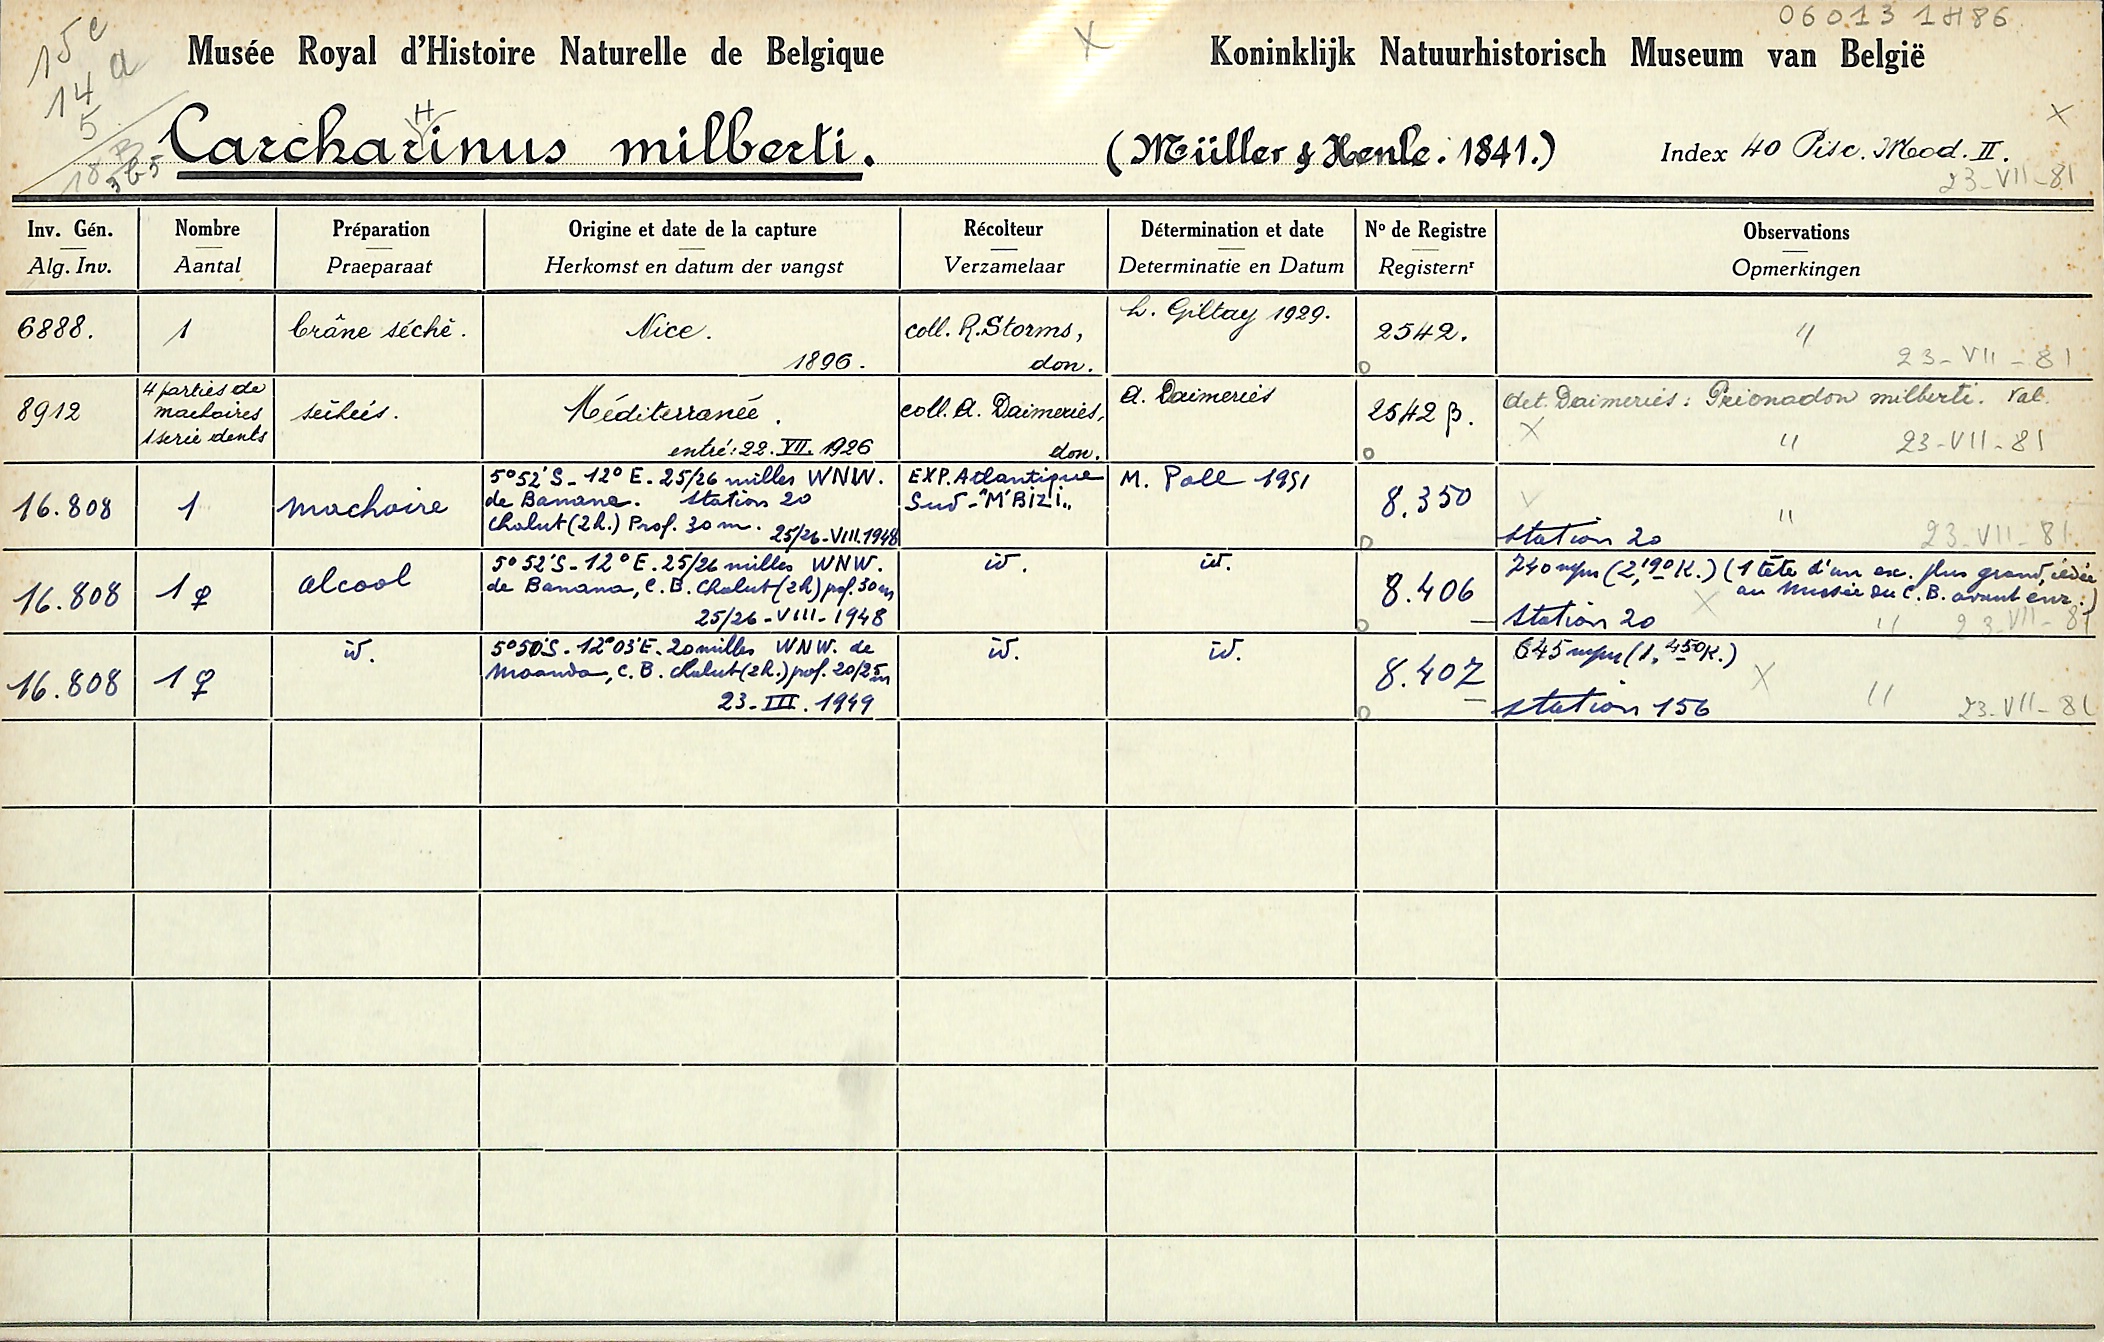 15 e
060131H86
Musée Royal d'Histoire Naturelle de Belgique
X
Koninklijk Natuurhistorisch Museum van België
14 a
5
H
Carcharinus milberti.
(Müller & Henle. 1841.)
Index 40 Pisc. Mod. II.
X
18 B
365
23-VII-81
Inv. Gén.
Alg. Inv.
Nombre
Aantal
Préparation
Praeparaat
Origine et date de la capture
Herkomst en datum der vangst
Récolteur
Verzamelaar
Détermination et date
Determinatie en Datum
Nº de Registre
Registernr
Observations
Opmerkingen
6888.
1
Crâne séché.
Nice.
1896.
coll. R. Storms,
don.
L. Giltay 1929.
2542.
"
23-VII-81
8912
4 parties de
machoires
1 serie dents
séchées.
Méditerranée.
entré: 22. VII. 1926
coll. A. Daimeries,
don.
A. Daimeries
2542 β.
det. Daimeries: Prionadon milberti. Val.
X
" 23-VII-81
16.808
1
machoire
5°52'S-12°E. 25/26 milles WNW.
de Banana. Station 20
Chalut (2h.) Prof. 30 m. 25/26-VIII.1948
EXP. Atlantique
Sud-"M'BIZI"
M. Poll 1951
8.350
"
Station 20
23-VII-81
16.808
1 ♀
alcool
5°52'S-12°E. 25/26 milles WNW.
de Banana, C.B. Chalut (2h) prof. 30m
25/26-VIII-1948
id.
id.
8.406
740 mm (2,190 K.) (1 tête d'un ex. plus grand, cédée
au Musée du C.B. avant enr.)
X
Station 20
" 23-VII-81
16.808
1 ♀
id.
5°50'S-12°03'E. 20 milles WNW. de
Moanda, C.B. Chalut (2h.) prof. 20/25m
23-III.1949
id.
id.
8.407
645 mm (1,450 K.)
X
Station 156
" 23-VII-81